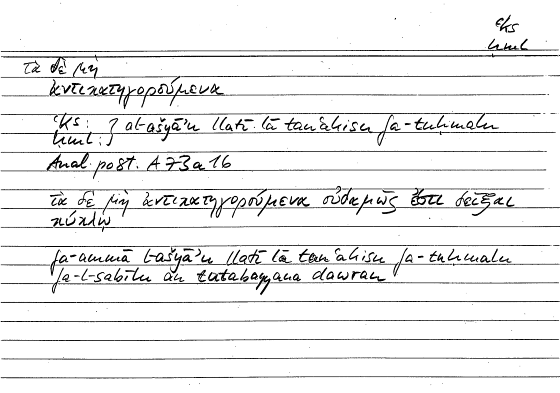 ʿks
ḥml
τὰ δὲ μὴ
ἀντικατηγορούμενα
ʿks: } al-ašyāʾu llatī lā tanʿakisu fa-tuḥmalu
ḥml:
Anal. post. A 73a16
τὰ δὲ μὴ ἀντικατηγορούμενα οὐδαμῶς ἔστι δεῖξαι
κύκλῳ
fa-ammā l-ašyāʾu llatī lā tanʿakisu fa-tuḥmalu
fa-l-sabīlu an tatabayyana dawran